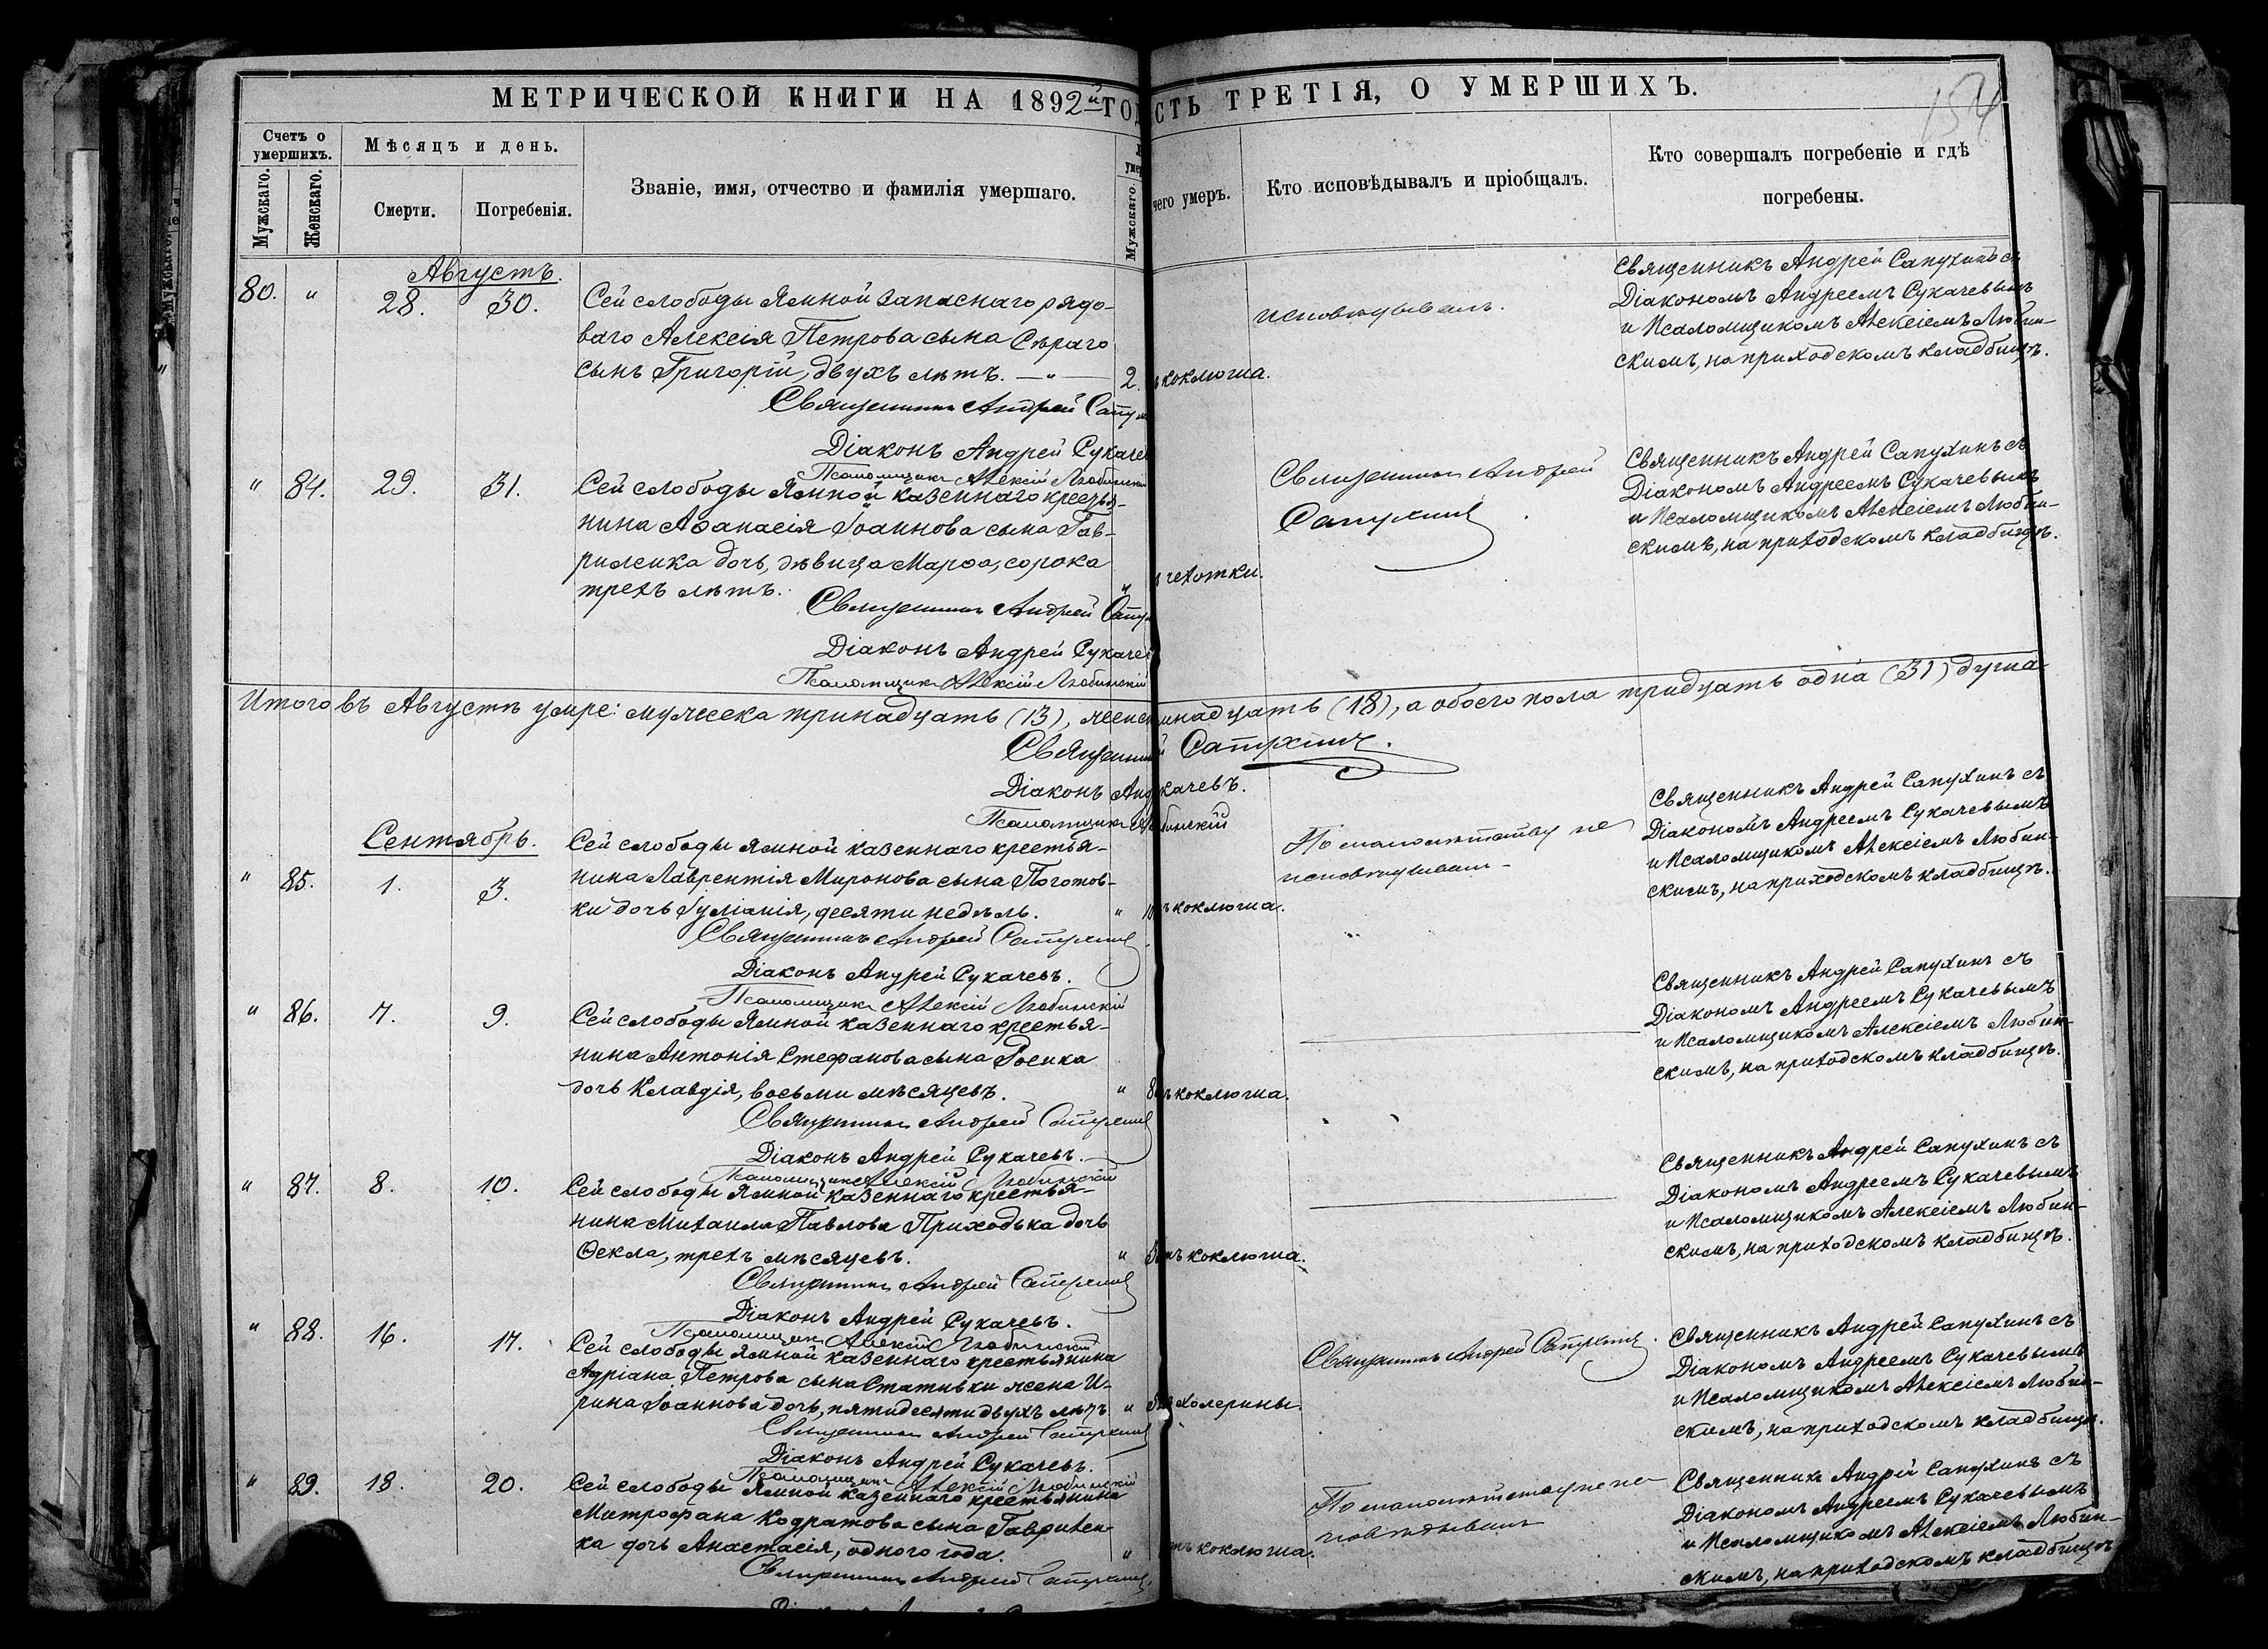 МЕТРИЧЕСКОЙ КНИГИ НА 1892й ГОД
СТЬ ТРЕТІЯ, О УМЕРШИХЪ.
154
Счетъ о умершихъ.
Мужскаго.
Женскаго.
Мѣсяцъ и день.
Смерти.
Погребенія.
Званіе, имя, отчество и фамилія умершаго.
Мужскаго.
чего умеръ.
Кто исповѣдывалъ и пріобщалъ.
Кто совершалъ погребеніе и гдѣ
погребены.
Августъ.
80. " 28. 30.
Сей слободы Ямной запаснаго рядо-
ваго Алексія Петрова сына Сѣраго
сынъ Григорій, двухъ лѣтъ. — " — 2.
коклюша.
исповѣдывалъ.
Священникъ Андрей Сапухинъ съ
Діакономъ Андреемъ Сукачевымъ
и Псаломщикомъ Алексіемъ Любин-
скимъ, на приходскомъ кладбищѣ.
Священникъ Андрей Сапух
Діаконъ Андрей Сукаче
Псаломщикъ Алексій Любинскій
" 84. 29. 31.
Сей слободы Ямной казеннаго крестья-
нина Аѳанасія Іоаннова сына Гав-
риленка дочь, дѣвица Марѳа, сорока
трехъ лѣтъ. "
чехотки.
Священникъ Андрей
Сапухинъ
Священникъ Андрей Сапухинъ съ
Діакономъ Андреемъ Сукачевымъ
и Псаломщикомъ Алексіемъ Любин-
скимъ, на приходскомъ кладбищѣ.
Священникъ Андрей Сапу
Діаконъ Андрей Сукаче
Псаломщикъ Алексій Любинскій
Итого въ Августѣ умре: мужеска тринадцать (13), женск
надцать (18), а обоего пола тридцать одна (31) душа.
Священни
Сапухинъ.
Діаконъ Анд
качевъ.
Псаломщикъ
бинскій
Сентябрь.
" 85. 1. 3.
Сей слободы Ямной казеннаго крестья-
нина Лаврентія Миронова сына Поготов-
ки дочь Іуліанія, десяти недѣль. " 10
коклюша.
По малолѣтству не
исповѣдывали
Священникъ Андрей Сапухинъ съ
Діакономъ Андреемъ Сукачевымъ
и Псаломщикомъ Алексіемъ Любин-
скимъ, на приходскомъ кладбищѣ.
Священникъ Андрей Сапухинъ
Діаконъ Андрей Сукачевъ.
Псаломщикъ Алексій Любинскій
" 86. 7. 9.
Сей слободы Ямной казеннаго крестья-
нина Антонія Стефанова сына
дочь Клавдія, восьми мѣсяцевъ. " 8
коклюша.
Священникъ Андрей Сапухинъ съ
Діакономъ Андреемъ Сукачевымъ
и Псаломщикомъ Алексіемъ Любин-
скимъ, на приходскомъ кладбищѣ.
Священникъ Андрей Сапухинъ
Діаконъ Андрей Сукачевъ.
Псаломщикъ Алексій Любинскій
" 87. 8. 10.
Сей слободы Ямной казеннаго крестья-
нина Михаила Павлова Приходька дочь
Ѳекла, трехъ мѣсяцевъ. " 3
коклюша.
Священникъ Андрей Сапухинъ съ
Діакономъ Андреемъ Сукачевымъ
и Псаломщикомъ Алексіемъ Любин-
скимъ, на приходскомъ кладбищѣ.
Священникъ Андрей Сапухинъ
Діаконъ Андрей Сукачевъ.
Псаломщикъ Алексій Любинскій
" 88. 16. 17.
Сей слободы Ямной казеннаго крестьянина
Адріана Петрова сына Стативки жена И-
рина Іоаннова дочь, пятидесяти двухъ лѣтъ "
холерины.
Священникъ Андрей Сапухинъ.
Священникъ Андрей Сапухинъ съ
Діакономъ Андреемъ Сукачевымъ
и Псаломщикомъ Алексіемъ Любин-
скимъ, на приходскомъ кладбищѣ.
Священникъ Андрей Сапухинъ
Діаконъ Андрей Сукачевъ.
Псаломщикъ Алексій Любинскій
" 89. 18. 20.
Сей слободы Ямной казеннаго крестьянина
Митрофана Кодратова сына Гаврилен-
ка дочь Анастасія, одного года. "
коклюша.
По малолѣтству не ис-
повѣдывали
Священникъ Андрей Сапухинъ съ
Діакономъ Андреемъ Сукачевымъ
и Псаломщикомъ Алексіемъ Любин-
скимъ, на приходскомъ кладбищѣ
Священникъ Андрей Сапухинъ